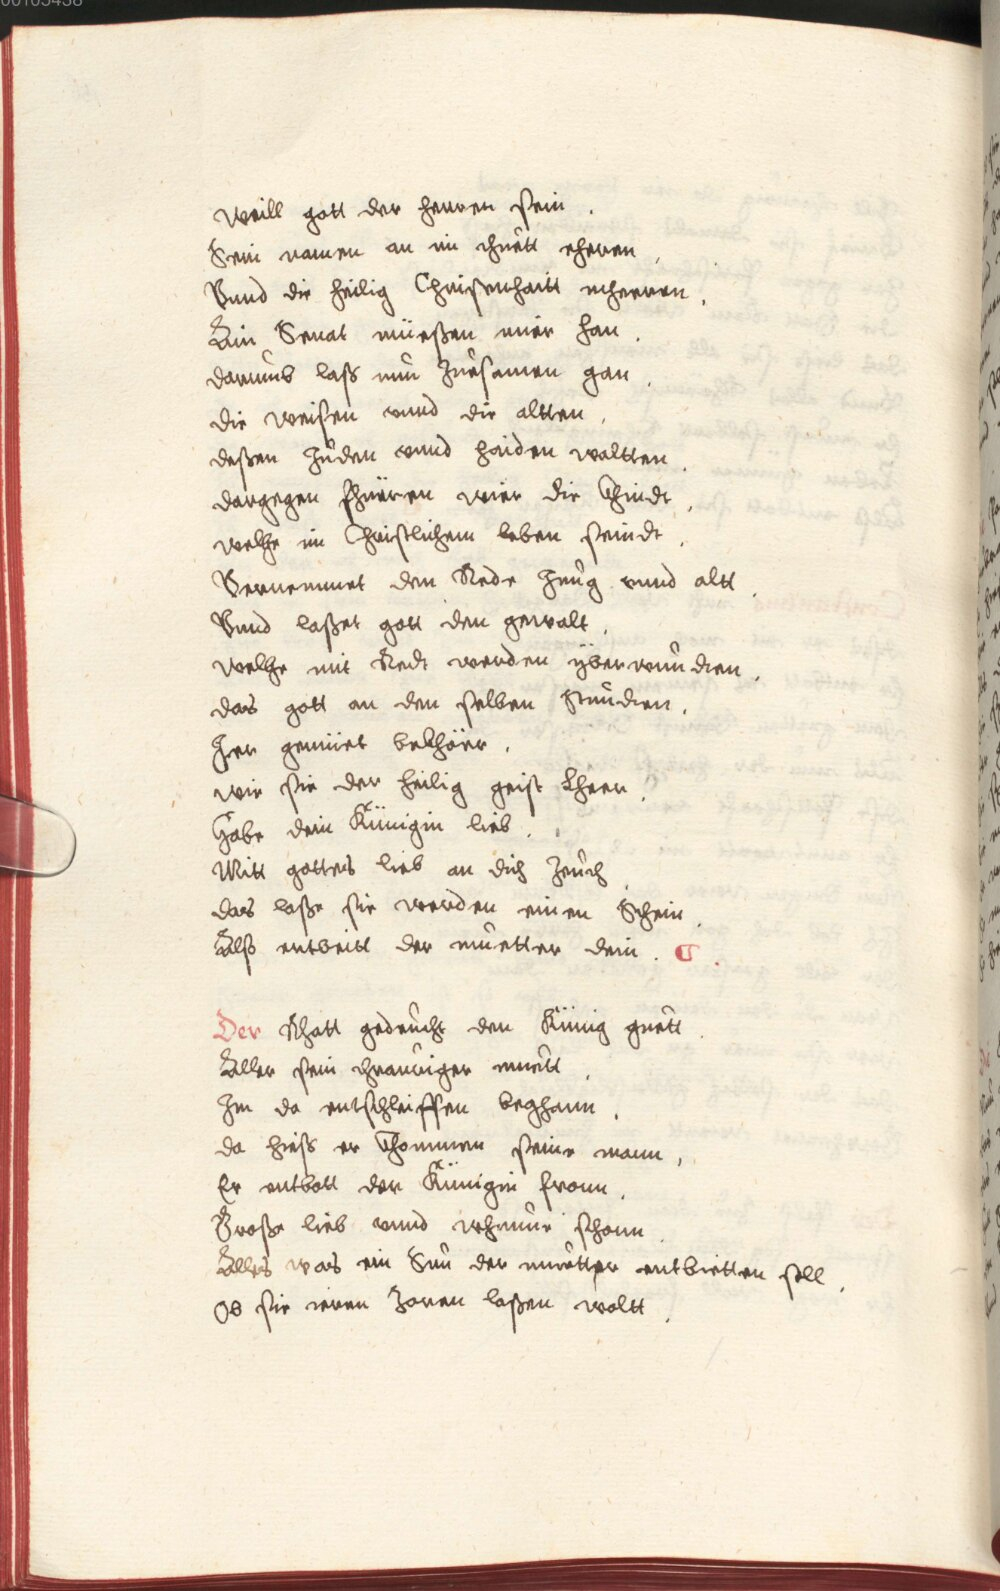 00105438
Weill gott der herren sein .
Sein namen an im thuett eheren ,
Vnnd die heilig Christenhaitt meheren .
Ain Senat müeßen mier han .
darumb laß nun Zuesamen gan .
die weisen vnnd die altten ,
deßen Juden vnnd haiden waltten .
dargegen fhüeren mier die Chindt ,
welche in Christlichem leben seindt ,
Vernemmet den Rede Jung vnnd altt .
Vnnd laßet gott den gewalt ,
welche mit Redt werden überwundten .
das gott an den selben Stundten ,
Jer gemüet bekhöer .
wie sie der heilig geist lheer ,
Habe dein Künigin lieb .
Mitt gottes lieb an dich Zeuch
das laße sie werden einen Schein .
Alß entbeitt der muetter dein .
Der Rhatt gedeucht den Künig guett .
Aller sein thrauriger muett ,
Im da entschleiffen beghann ,
da hieß er Chommen seine mann ,
Er entbott der Künigin fronn ,
Große lieb vnnd mhinne schonn .
Alles was ein Sun der muetter entbietten soll .
Ob sie ieren Zoren laßen woltt .